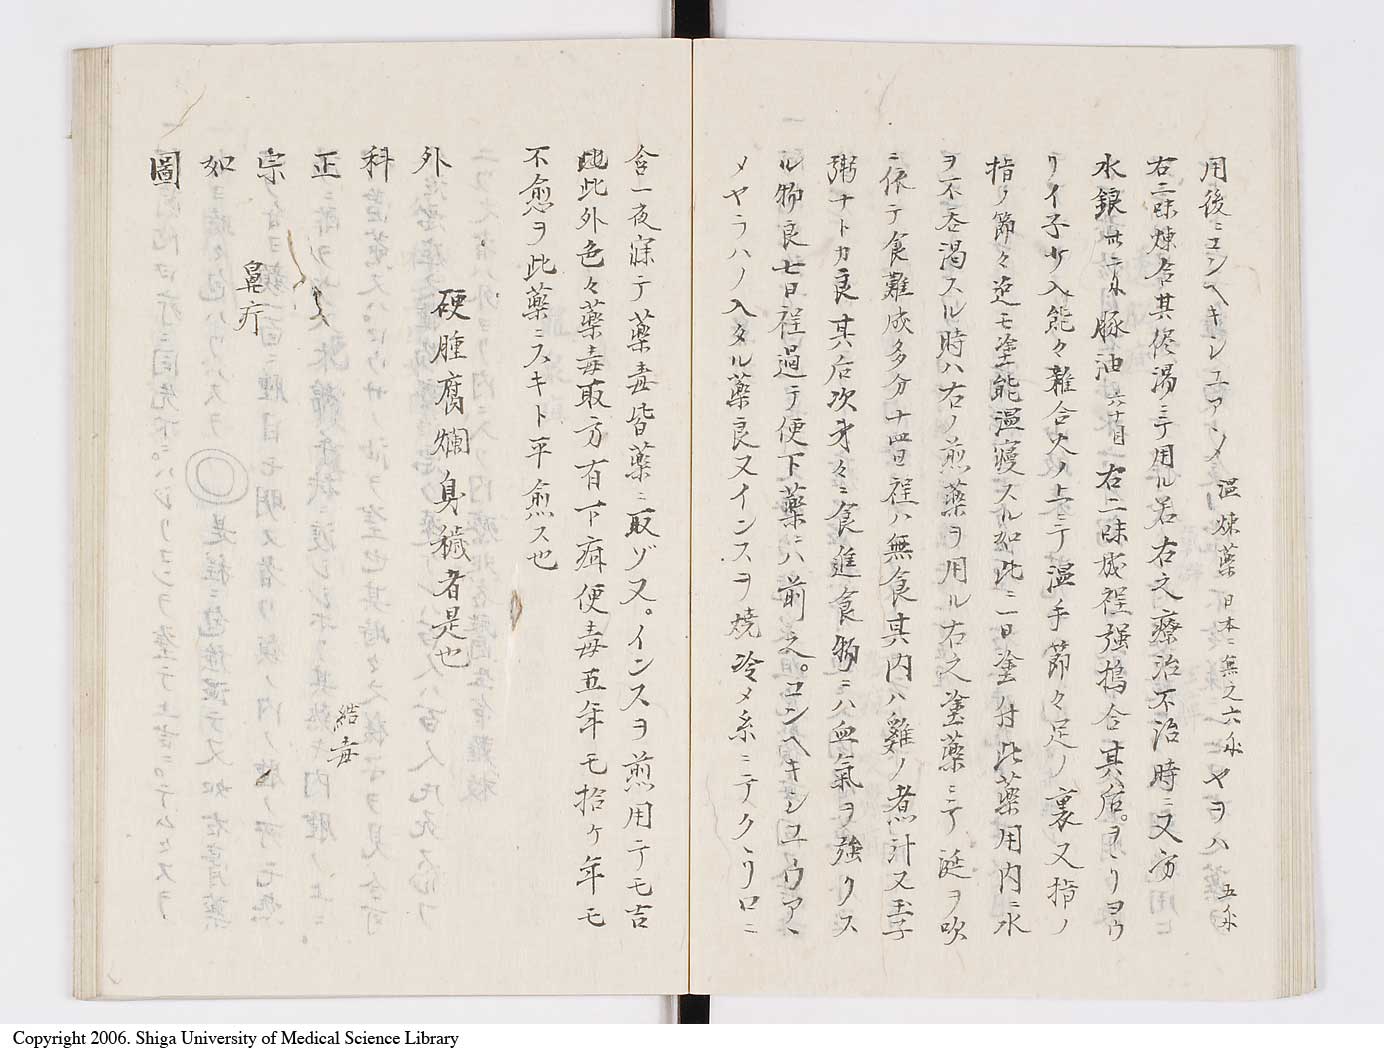 用後ニコンヘキンユアン〆 温煉薬 日本ニ無之六ホ ヤヲハ 五ホ
右二味煉合其後湯ニテ用ル若右之療治不治時ニ又方
水銀 廿二ホ 豚油 六十目 右二味成程强搗合其后。ヲヽリヨウ
リイ子少入能々雜合火ノ上ニテ温手節々足ノ裏又指ノ
指ノ節々迄モ塗能温寢スル如此ニ一日塗ハ付此薬用内ニ水
ヲ不呑渇スル時ハ右ノ煎薬ヲ用ル右之塗薬ニテ涎ヲ吹
ニ依テ食難成多分十四日程ハ無食其内ハ雞ノ煮汁又玉子
粥ナトカ良其后次才々ニ食進食物ニハ血氣ヲ強クス
ル物良七日程過テ便下薬ニハ前之。コンヘキンユウアヽ
メヤラハノ入タル薬良又インスヲ焼冷メ糸ニテクヽリロニ
含一夜寐テ薬毒皆薬ニ取ゾ又。インスヲ煎用テモ吉
此外色々薬毒取方有下疳便毒五年モ拾ケ年モ
不愈ヲ此薬ニスキト平愈ス也
硬腫腐爛身穢者是也
外科正宗如圖
結毒
鼻疔
Copyright 2006. Shiga University of Medical Science Library